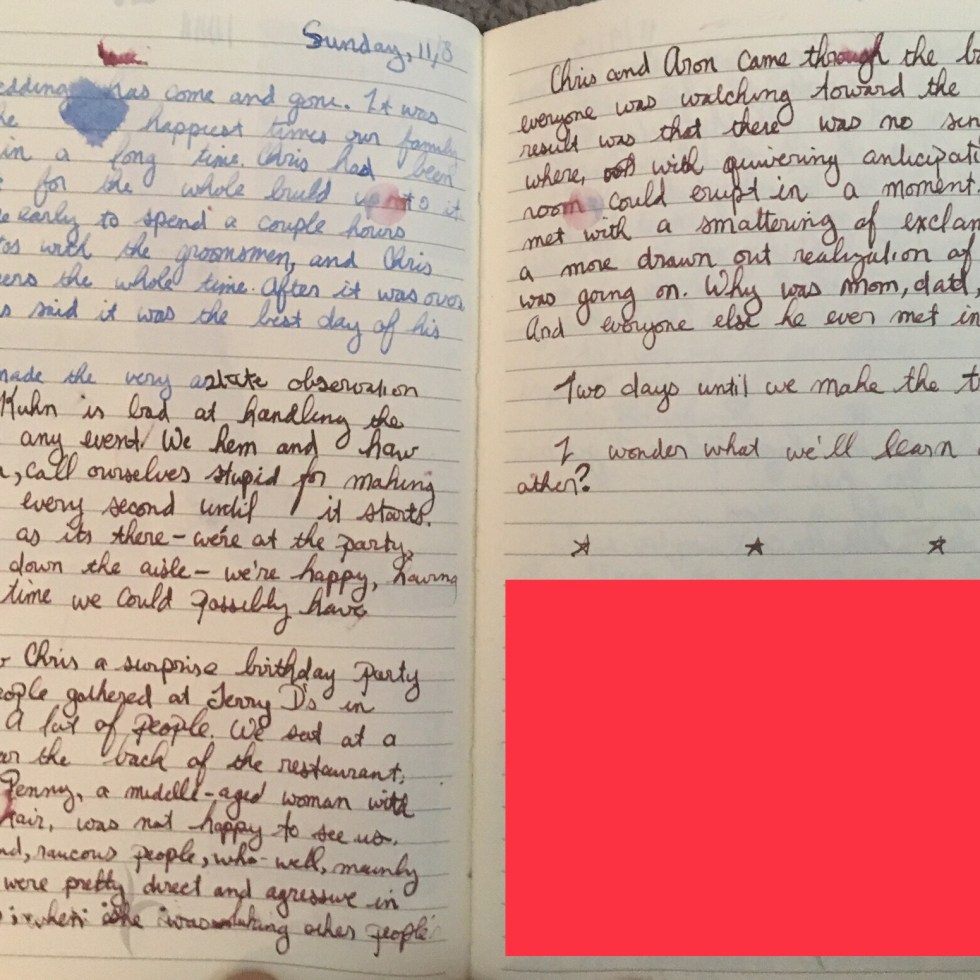 Sunday, 11/8
edding has come and gone. It was
he happiest times our family
in a long time. Chris had been
for the whole build up to it
e early to spend a couple hours
tos with the groomsmen, and Chris
eers the whole time. After it was over
s said it was the best day of his
made the very astute observation
Kuhn is bad at handling the
any event. We hem and haw
, call ourselves stupid for making
every second until it starts.
as its there - we're at the party,
down the aisle - we're happy, having
time we could possibly have
Chris a surprise birthday party
eople gathered at Jerry D's in
A lot of people. We sat at a
ar the back of the restaurant.
Penny, a middle-aged woman with
hair, was not happy to see us.
nd, raucous people, who - well, mainly
were pretty direct and agressive in
when she was making other people
Chris and Aron came through the ba
everyone was watching toward the
result was that there was no sin
where, with quivering anticipati
room could erupt in a moment.
met with a smattering of exclam
a more drawn out realization of
was going on. Why was mom, dad,
And everyone else he ever met in
Two days until we make the t
I wonder what we'll learn
ather?